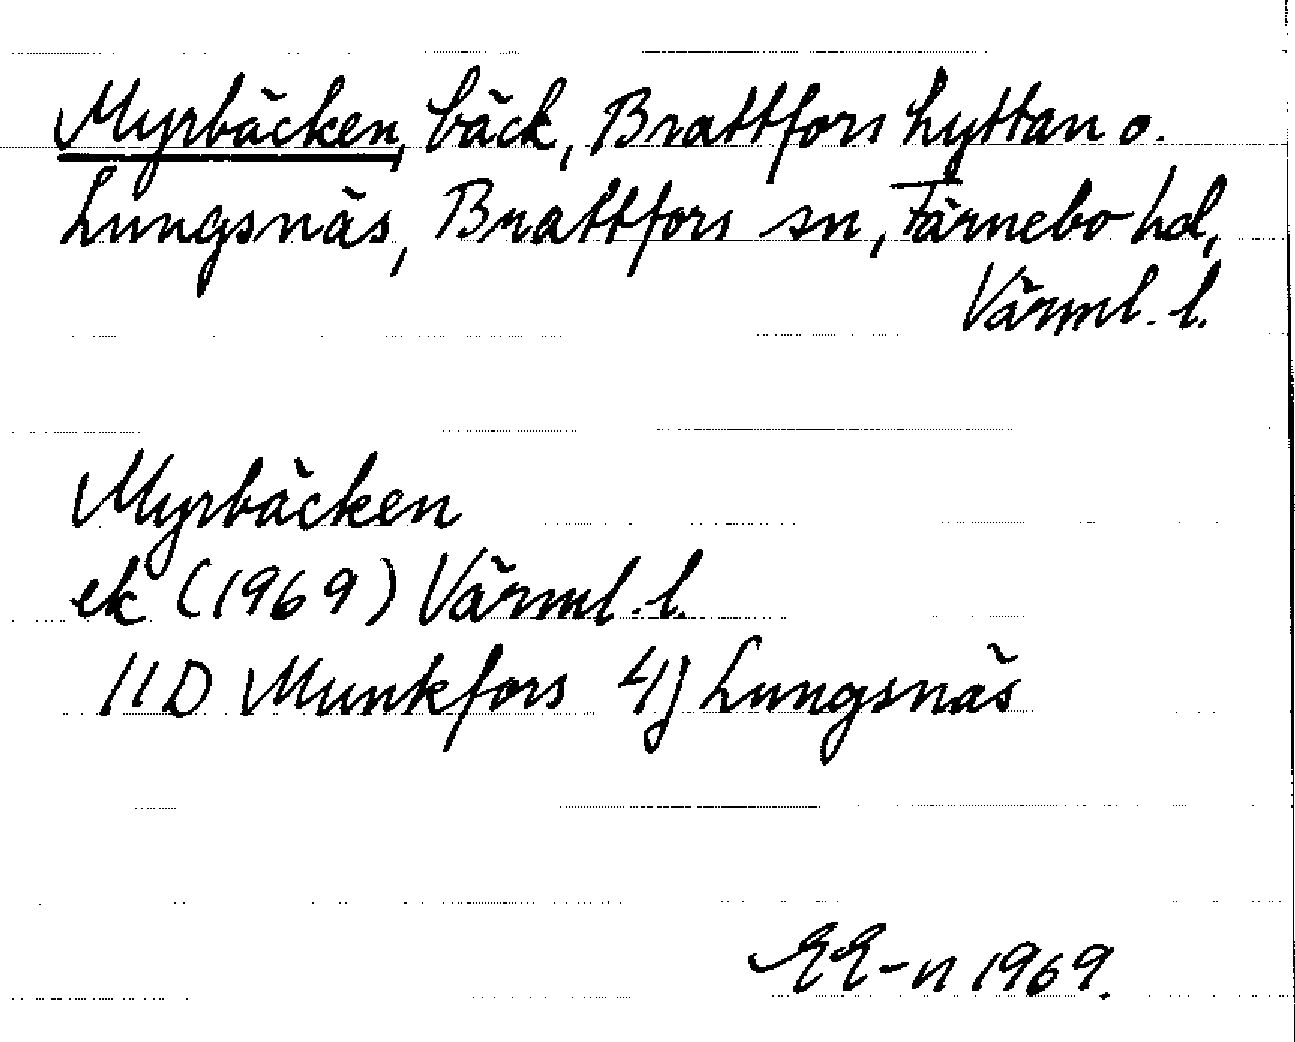 Myrbäcken, bäck, Brattforshyttan o.
Lungsnäs, Brattfors sn, Färnebo hd,
Värml. l.
Myrbäcken
ek (1969) Värml. l.
11D Munkfors 4j Lungsnäs
EE-n 1969.